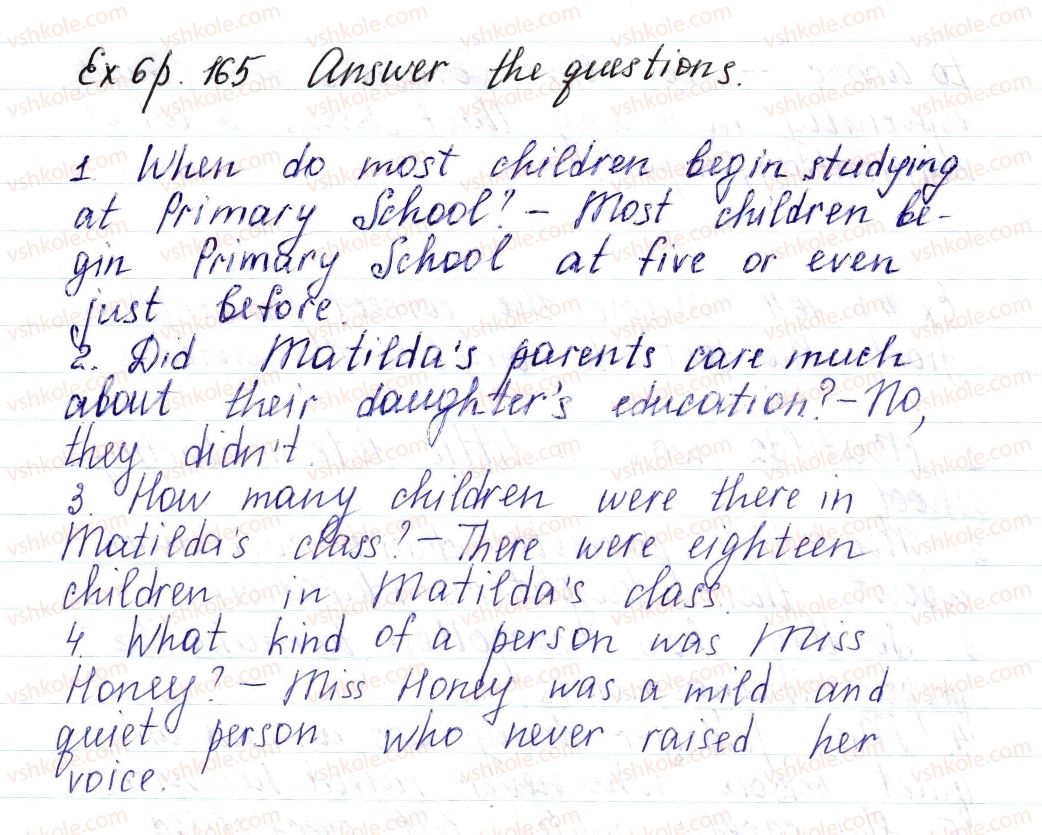 Ex 6 p. 165 Answer the questions.
1. When do most children begin studying
at Primary School? - Most children be-
gin Primary School at five or even
just before.
2. Did Matilda's parents care much
about their daughter's education? - No,
they didn't.
3. How many children were there in
Matilda's class? - There were eighteen
children in Matilda's class.
4. What kind of a person was Miss
Honey? - Miss Honey was a mild and
quiet person who never raised her
voice.